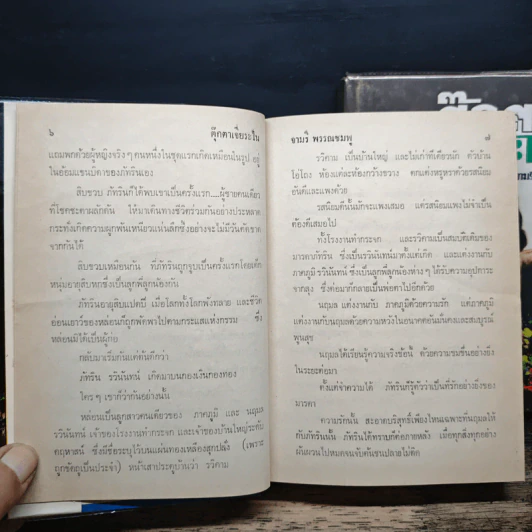 ๖ ตุ๊กตาเจียระไน
แถมพกด้วยผู้หญิงจริง ๆ คนหนึ่งในชุดแรกเกิดเหมือนในรูป อยู่
ในอ้อมแขนบิดาของภัทริน
สิบขวบ ภัทรินก็ได้พบเขาเป็นครั้งแรก....ผู้ชายคนเดียว
ที่โชคชะตาผลักดัน ให้มาเดินทางชีวิตร่วมกันอย่างประหลาด
กระทั่งเกิดความผูกพันเหนียวแน่นลึกซึ้งอย่างจะไม่มีวันตัดขาด
จากกันได้
สิบขวบเหมือนกัน ที่ภัทรินถูกจูบเป็นครั้งแรกโดยเด็ก
หนุ่มอายุสิบหก ซึ่งเป็นพี่ลูกน้องกัน
ภัทรินอายุสิบแปดปี เมื่อโลกทั้งโลกพังทลาย และชีวิต
อ่อนเยาว์ของหล่อนก็ถูกพัดพาไปตามกระแสแห่งกรรม ซึ่ง
หล่อนมิได้เป็นผู้ก่อ
กลับมาเริ่มกันแต่ต้นดีกว่า
ภัทริน รวินันทน์ เกิดมาบนกองเงินกองทอง
ใคร ๆ เขาก็ว่ากันอย่างนั้น
หล่อนเป็นลูกสาวคนเดียวของ ภาคภูมิ และ นฤมล
รวินันทน์ เจ้าของโรงงานทำกระจก และเจ้าของบ้านใหญ่ระดับ
คฤหาสน์ ซึ่งมีชื่อระบุไว้บนแผ่นทองเหลืองสุกปลั่ง (เพราะ
ถูกขัดถูเป็นประจำ) หน้าเสาประตูบ้านว่า รวิคาม
จามรี พรรณชมพู ๗
รวิคาม เป็นบ้านใหญ่ และไม่เก่าทีเดียวนัก ตัวบ้าน
โอ่โถง ห้องแต่ละห้องกว้างขวาง ตกแต่งหรูหราด้วยรสนิยม
อันดีและแพงด้วย
รสนิยมดีนั้นมักจะแพงเสมอ แต่รสนิยมแพงไม่จำเป็น
ต้องดีเสมอไป
ทั้งโรงงานทำกระจก และรวิคามเป็นสมบัติเดิมของ
มารดาภัทริน ซึ่งเป็นรวินันทน์มาตั้งแต่เกิด และแต่งงานกับ
ภาคภูมิ รวินันทน์ ซึ่งเป็นลูกพี่ลูกน้องห่าง ๆ ได้รับความอุปการะ
จากลุง ซึ่งต่อมาก็กลายเป็นพ่อตาไปอีกด้วย
นฤมล แต่งงานกับ ภาคภูมิด้วยความรัก แต่ภาคภูมิ
แต่งงานกับนฤมลด้วยความหวังในอนาคตอันมั่นคงและสมบูรณ์
พูนสุข
นฤมลได้เรียนรู้ความจริงข้อนี้ ด้วยความขมขื่นอย่างยิ่ง
ในระยะต่อมา
ตั้งแต่จำความได้ ภัทรินก็รู้ตัวว่าเป็นที่รักอย่างยิ่งของ
มารดา
ความรักนั้น สะอาดบริสุทธิ์เพียงไหนเฉพาะที่นฤมลให้
กับภัทรินนั้น ภัทรินได้ทราบก็ต่อภายหลัง เมื่อทุกสิ่งทุกอย่าง
ผันผวนไปหมดจนจับต้นชนปลายไม่ติด